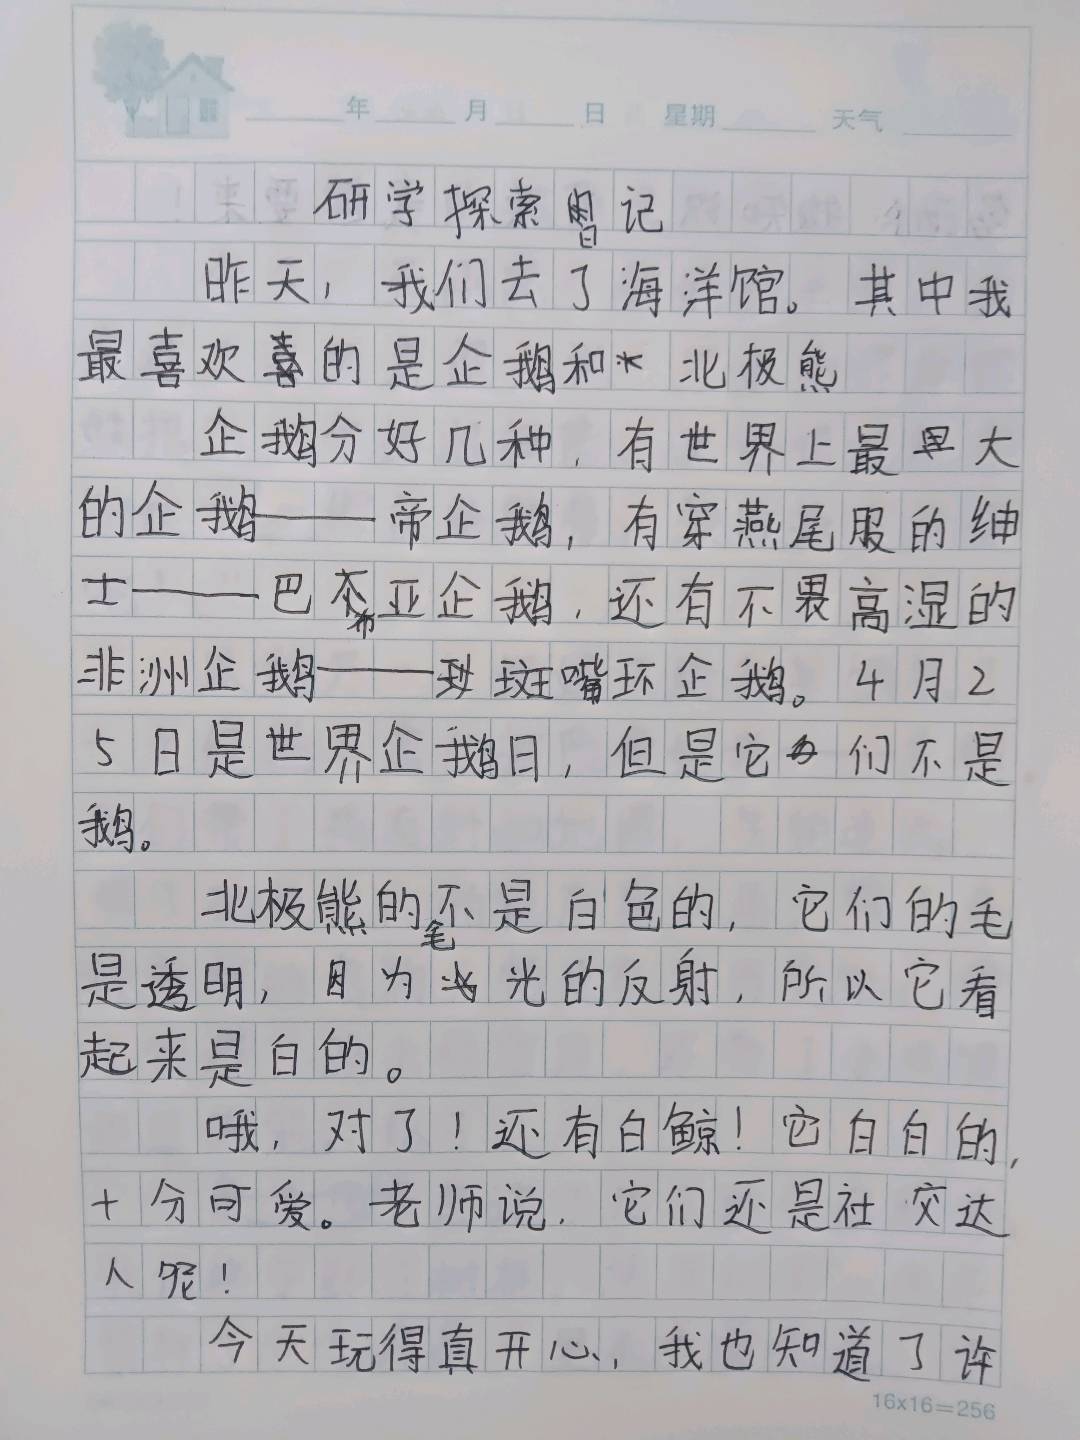 年 月 日 星期 天气
研学探索日记
昨天，我们去了海洋馆。其中我
最喜欢喜的是企鹅和 北极熊
企鹅分好几种，有世界上最大
的企鹅——帝企鹅，有穿燕尾服的绅
士——巴布亚企鹅，还有不畏高湿的
非洲企鹅——斑嘴环企鹅。4月2
5日是世界企鹅日，但是它们不是
鹅。
北极熊的毛不是白色的，它们的毛
是透明，因为光的反射，所以它看
起来是白的。
哦，对了！还有白鲸！它白白的，
十分可爱。老师说，它们还是社交达
人呢！
今天玩得真开心，我也知道了许
16x16=256